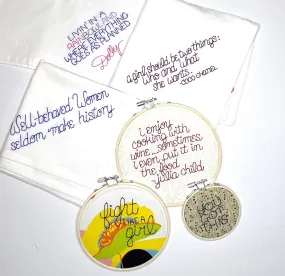 LIVIN' IN A
RAINBOWLAND
WHERE EVERYTHING
GOES AS PLANNED
Dolly
a girl should be two things:
who and what
she wants.
COCO CHANEL
Well-behaved Women
seldom make history
i enjoy
cooking with
wine...sometimes,
i even put it in
the food
julia child
fight
LIKE A
girl